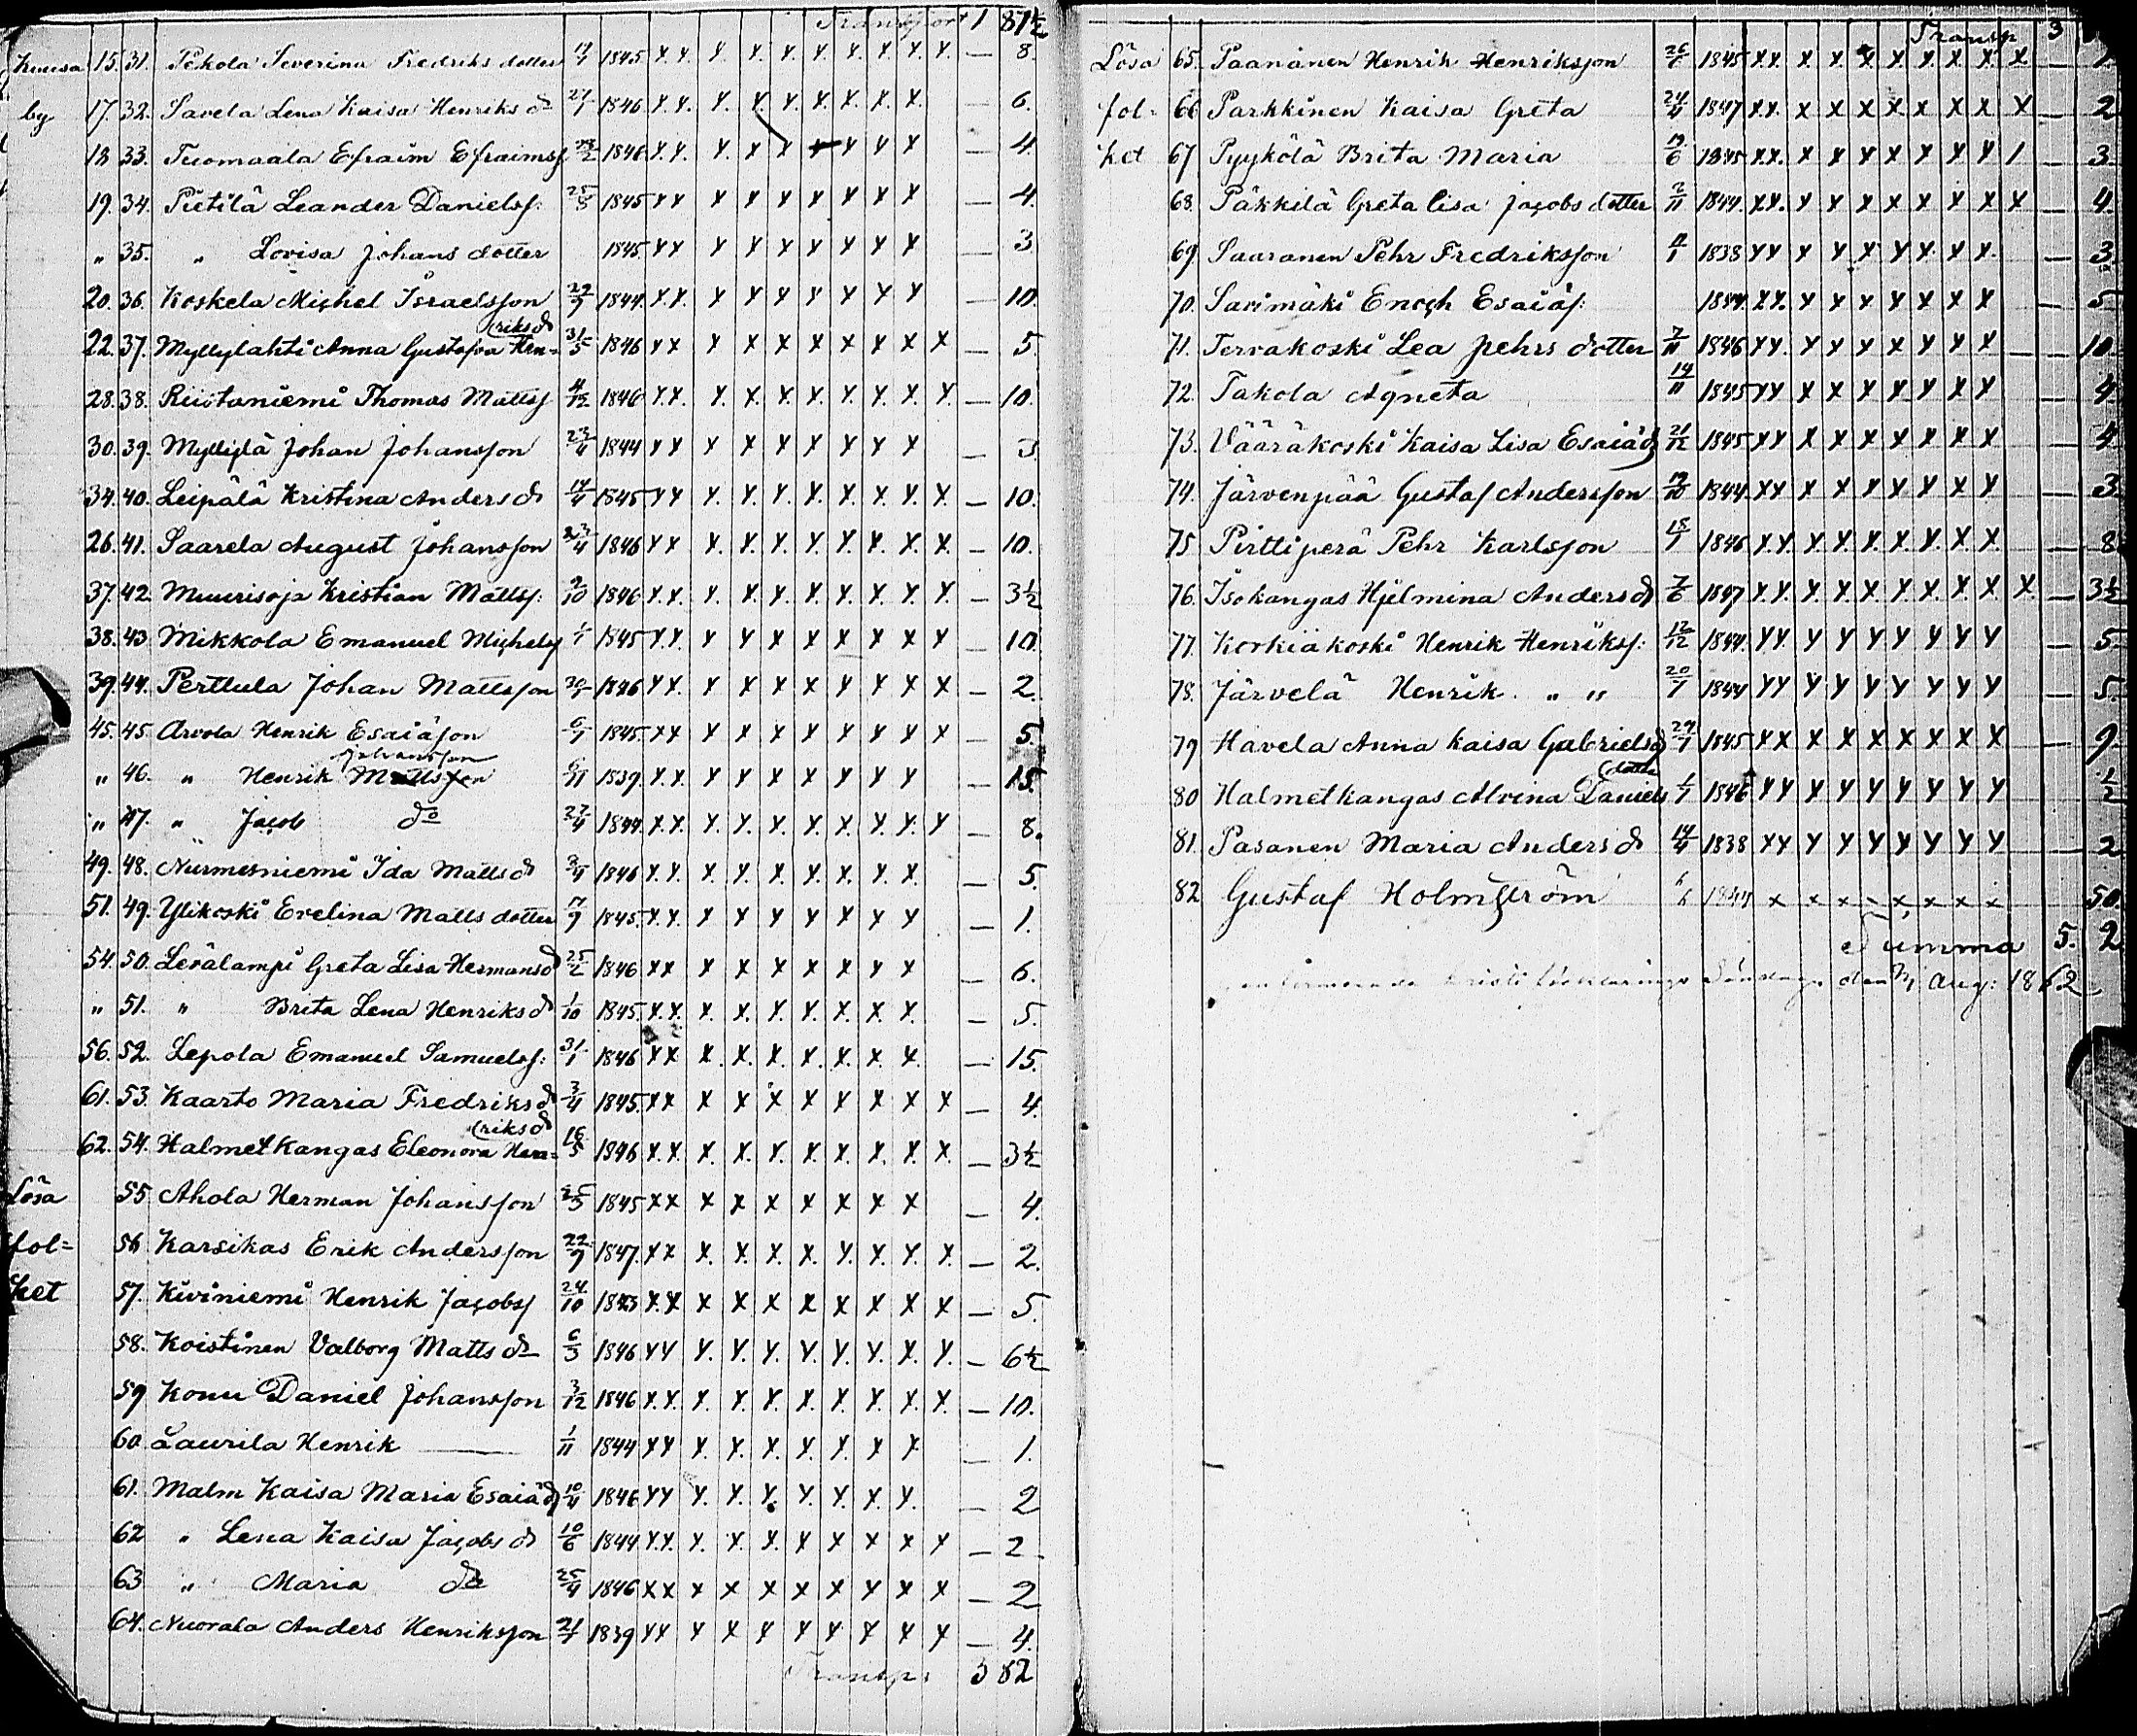 Transport 1 87½
Kuusa 15. 31. Pekola Severina Fredriks dotter 1845. X X. X. X. X. X X. X. X. X. — 8.
by 17. 32. Savela Lena Kaisa Henriks d:r 1846 X. X. X. X. X. X. X. X. X. — 6.
18 33. Tuomaala Efraim Efraimsf 1846 X. X. X. X X X X X — 4.
19. 34. Pietilä Leander Danielsf: 25/8 1845 X X X X X X X X X — 4.
" 35. " Lovisa Johans dotter 1845. X X X X X X X X X — 3
20. 36. Koskela Michel Israelsson 29/9 1844. X X. X X X X X X X — 10.
22. 37. Myllylahti Anna Gustafva Hen= (riks dr 31/5 1846 X X X X X X X X X X — 5.
28. 38. Riistaniemi Thomas Mattsf 4/12 1846 X. X. X. X. X. X. X. X. X. X. — 10.
30. 39. Myllylä Johan Johansson 23/4 1844 X X X X X X X X X — 3
34. 40. Leipälä Kristina Anders dr 14/4 1845 X X X. X. X. X. X. X. X. X. — 10.
26. 41. Saarela August Johansson 23/4 1846 X X X. X. X. X. X. X. X. X. — 10.
37. 42. Muurisoja Kristian Mattsf: 9/10 1846 X. X. X. X. X. X. X. X. X. X. — 3½
38. 43. Mikkola Emanuel Michelsf 1/1 1845 X X. X X X X X X X X — 10.
39. 44. Perttula Johan Mattsson 1846 X X. X X X X X X X X — 2.
45. 45. Arvola Henrik Esaiäson 6/1 1845. X X X X X X X X X X — 5.
Johansson
" 46. " Henrik Mattsson 6/11 1839. X. X X X X X X X X X — 15.
" 47. " Jacob do 27/4 1844. X. X. X. X. X. X. X. X. X. X — 8.
49. 48. Nurmesniemi Ida Matts dr 1846 X. X. X. X. X. X. X. X. X. — 5.
51. 49. Ylikoski Evelina Matts dotter 17/9 1845. X. X. X X X X X X X — 1.
54. 50. Levälampi Greta Lisa Hermans dr 25/2 1846 X X X X X X X X X — 6.
" 51. " Brita Lena Henriks dr 1/10 1845. X. X. X. X. X. X. X. X. X. — 5.
56. 52. Lepola Emanuel Samuelsf: 31/1 1846 X X X. X. X. X. X. X. X. — 15.
61. 53. Kaarto Maria Fredriks dr 3/4 1845. X X X X X X X X X X — 4.
62. 54. Halmetkangas Eleonora Hen= (riks dr 16/5 1846 X. X. X. X. X. X. X. X. X. X. — 3½
Lösa 55. Ahola Herman Johansson 25/3 1845 X X X X X X X X X — 4.
fol= 56. Karsikas Erik Andersson 22/9 1847. X X X. X. X. X. X. X. X. X. — 2.
ket 57. Kiviniemi Henrik Jacobsf 24/10 1843 X. X X X X X X X X X — 5.
58. Koistinen Valborg Matts dr 6/3 1846 X X X. X. X. X. X. X. X. X. — 6½
59 Konu Daniel Johansson 3/12 1846 X. X. X. X. X. X. X. X. X. X. — 10.
60. Laurila Henrik 1/11 1844 X X X. X. X. X. X. X X — 1.
61. Malm Kaisa Maria Esaiä dr 10/4 1846 X X X. X. X. X. X. X. X. — 2
62 " Lena Kaisa Jacobs dr 10/6 1844 X. X. X. X. X. X X X X X — 2
63 " Maria do 25/4 1846 X X X X X X X X X X — 2
64. Nuorala Anders Henriksson 21/1 1839 X X X X X X X X X X — 4.
Transp: 3 82
Transp 3
Lösa 65. Paananen Henrik Henriksson 26/1 1845 X X. X. X. X. X. X. X. X. X. — 1.
fol= 66 Parkkinen Kaisa Greta 24/4 1847 X X. X X X X X X X X — 2
ket 67 Pyykölä Brita Maria 1845 X X. X X X X X X X 1 — 3.
68. Päkkilä Greta Lisa Jacobs dotter 2/11 1844. X X. X X X X X X X X — 4.
69. Saaranen Pehr Fredriksson 1838 X X X X. X X X. X. X. — 3.
70. Sarimäki Enoch Esaiäs: 1844. X X. X X X X X X X — 5
71. Tervakoski Lea Pehrs dotter 7/11 1846 X X. X X X X X X X — 10
72. Takola Agneta 14/11 1845 X X X X X X X X X — 4.
73. Vääräkoski Kaisa Lisa Esaiä dr 21/12 1845 X X X X X X X X X — 4.
74. Järvenpää Gustaf Andersson 1844. X X X X X X X X X — 3.
75 Pirttiperä Pehr Karlsson 15/1 1846 X. X. X. X. X. X. X. X. X. — 8
76. Isokangas Hjelmina Anders dr 7/6 1847 X. X. X. X. X. X. X. X. X X. — 3½
77. Korkiakoski Henrik Henriksf: 12/12 1844. X X. X X X X X X X — 5.
78. Järvelä Henrik " " 20/1 1844 X X X X X X X X X — 5.
79 Havela Anna Kaisa Gabriels dr 29/1 1845 X X X X X X X X X — 9.
80 Halmetkangas Alvina Daniels (dotter 1/1 1846 X X X X X X X X X ½
81. Pasanen Maria Anders dr 14/4 1838 X X X X X X X X X — 2
82 Gustaf Holmström 1844 x x x x x x x x 50.
Summa 5. 2
Söndag den Aug: 1862